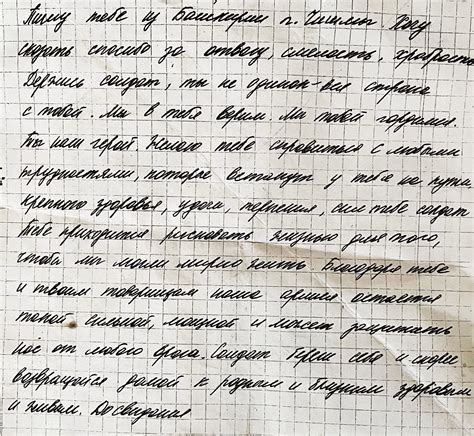 Пишу тебе из Башкирии п. Чишмы. Хочу
сказать спасибо за отвагу, смелость, храбрость
Держись солдат, ты не одинок-вся страна
с тобой. Мы в тебя верим. Мы тобой гордимся.
Ты наш герой. Желаю тебе справиться с любыми
трудностями, которые встанут у тебя на пути.
Крепкого здоровья, удачи, терпения, сил тебе солдат
Тебе приходится рисковать жизнью для того,
чтобы мы могли мирно жить. Благодаря тебе
и твоим товарищам наша армия остается
такой сильной, мощной и может защитить
нас от любого врага. Солдат береги себя и скорее
возвращайся домой к родным и близким здоровым
и живым. Досвидания